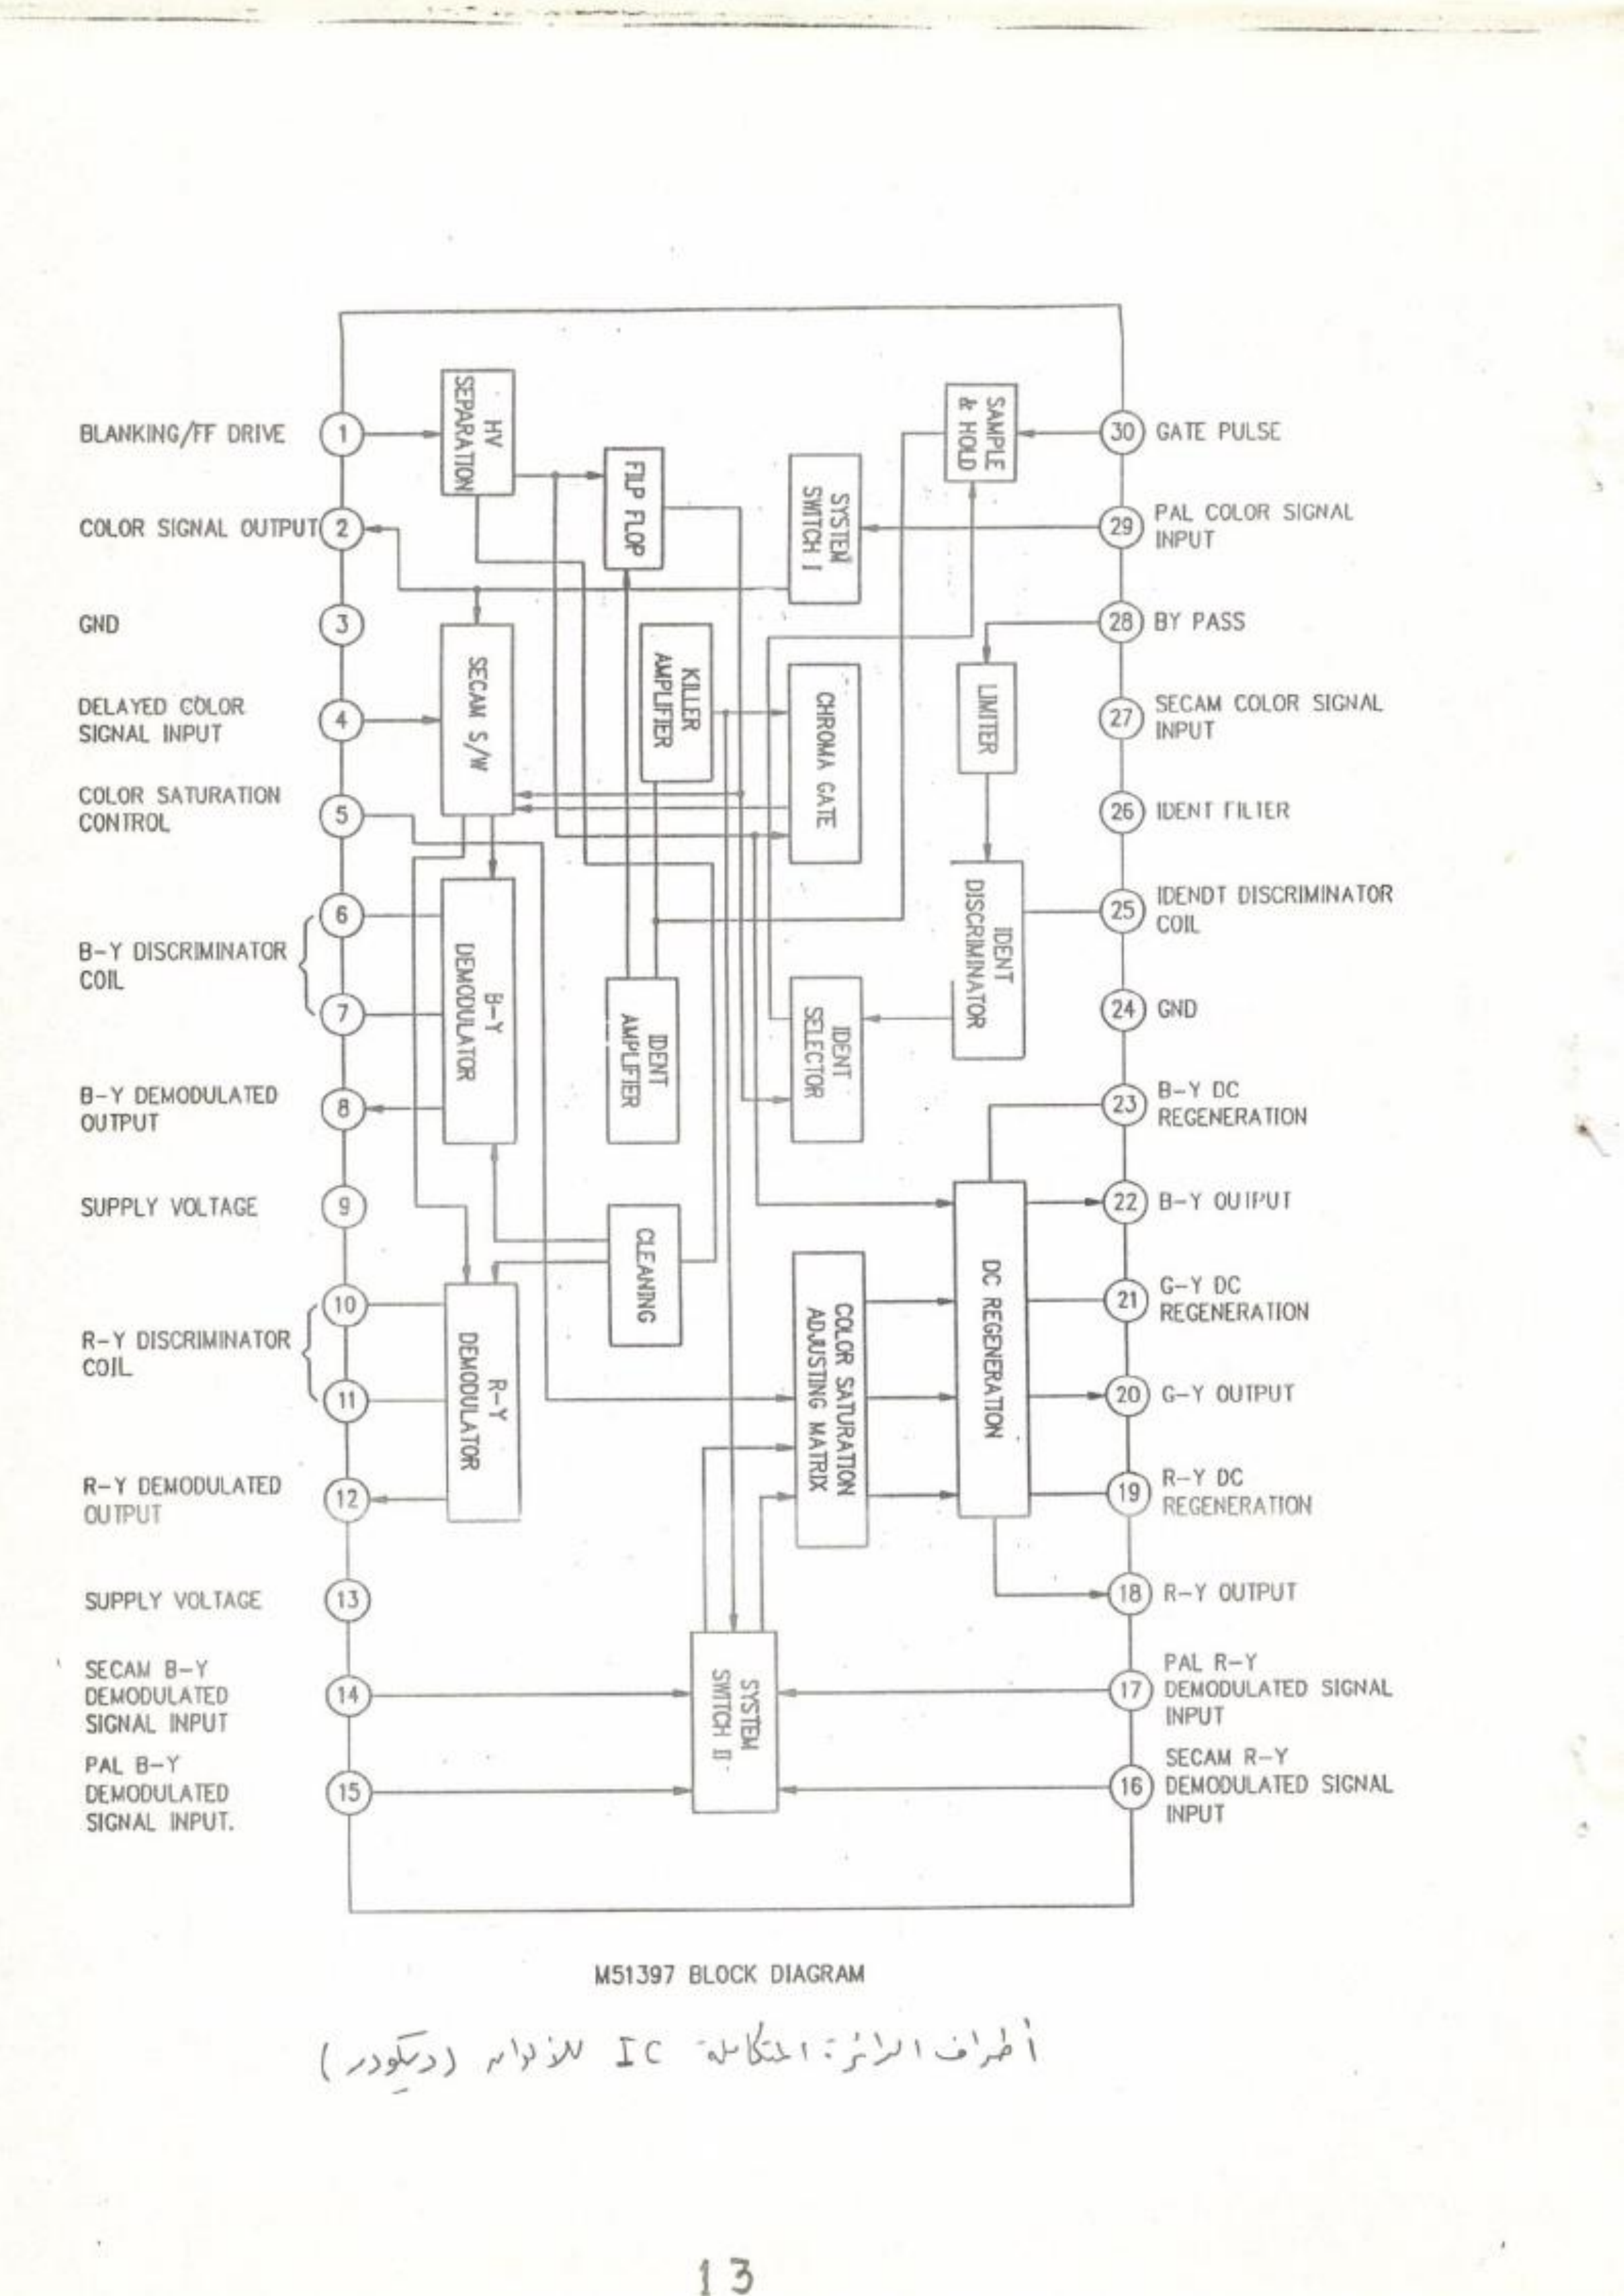 BLANKING/FF DRIVE
1
COLOR SIGNAL OUTPUT
2
GND
3
DELAYED COLOR
SIGNAL INPUT
4
COLOR SATURATION
CONTROL
5
6
B-Y DISCRIMINATOR
COIL
7
B-Y DEMODULATED
OUTPUT
8
SUPPLY VOLTAGE
9
10
R-Y DISCRIMINATOR
COIL
11
R-Y DEMODULATED
OUTPUT
12
SUPPLY VOLTAGE
13
SECAM B-Y
DEMODULATED
SIGNAL INPUT
14
PAL B-Y
DEMODULATED
SIGNAL INPUT.
15
HV
SEPARATION
FILP FLOP
SYSTEM
SWITCH I
SAMPLE
& HOLD
SECAM S/W
KILLER
AMPLIFIER
CHROMA GATE
LIMITER
B-Y
DEMODULATOR
IDENT
AMPLIFIER
IDENT
SELECTOR
IDENT
DISCRIMINATOR
CLEANING
R-Y
DEMODULATOR
COLOR SATURATION
ADJUSTING MATRIX
DC REGENERATION
SYSTEM
SWITCH II
30
GATE PULSE
29
PAL COLOR SIGNAL
INPUT
28
BY PASS
27
SECAM COLOR SIGNAL
INPUT
26
IDENT FILTER
25
IDENDT DISCRIMINATOR
COIL
24
GND
23
B-Y DC
REGENERATION
22
B-Y OUTPUT
21
G-Y DC
REGENERATION
20
G-Y OUTPUT
19
R-Y DC
REGENERATION
18
R-Y OUTPUT
17
PAL R-Y
DEMODULATED SIGNAL
INPUT
16
SECAM R-Y
DEMODULATED SIGNAL
INPUT
M51397 BLOCK DIAGRAM
أطراف الدائرة المتكاملة IC للألوان (ديكودر)
13